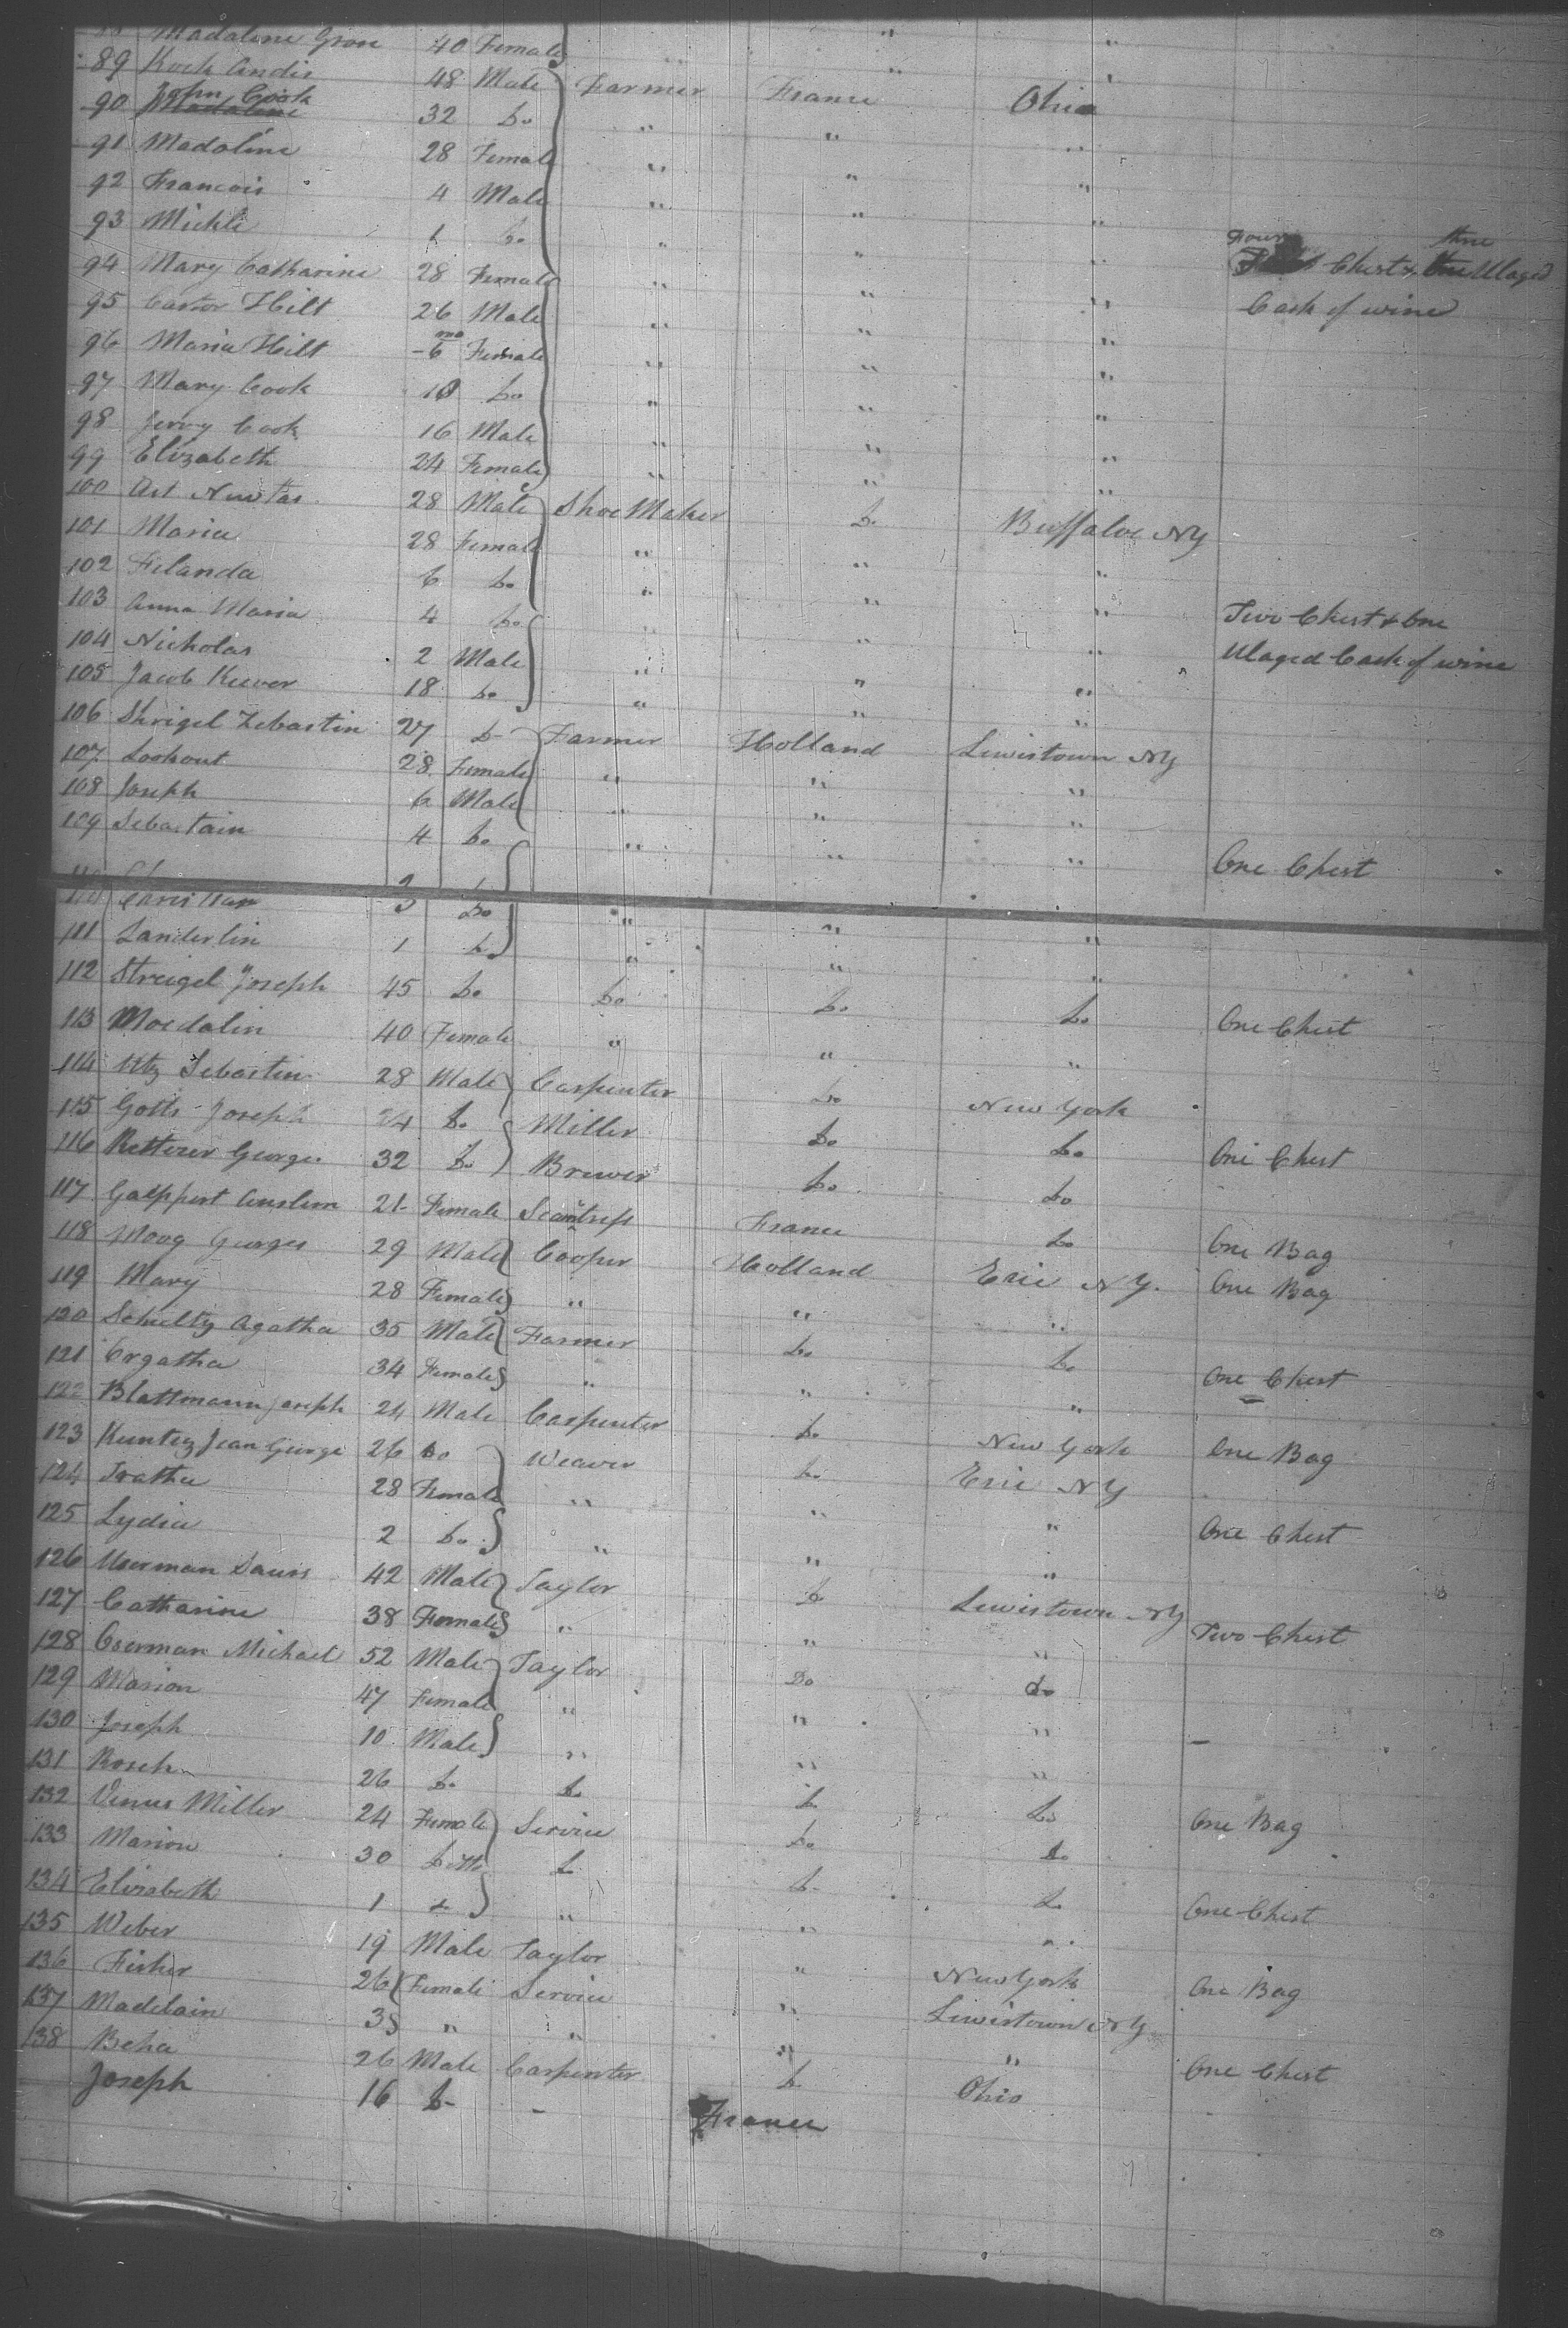 88 Madaline Gron 40 Female " "
89 Kock Andis 48 Male Farmer France Ohio
90 John Cook Madaline 32 Do " " "
91 Madaline 28 Female " " "
92 Francois 4 Male " " "
93 Michli 1 Do " " "
94 Mary Catharine 28 Female " " " Four Chest & three Ulaged
95 Castor Hilt 26 Male " " " Cask of wine
96 Maria Hilt 6 mo Female " " "
97 Mary Cook 10 Do " " "
98 Jerry Cook 16 Male " " "
99 Elizabeth 24 Female " " "
100 Art Newtas 28 Male Shoe Maker Do Buffaloe NY
101 Maria 28 Female " " "
102 Filanda 6 Do " " "
103 Anna Maria 4 Do " " " Two Chest & One
104 Nicholas 2 Male " " " Ulaged Cask of wine
105 Jacob Kuver 18 Do " " "
106 Shrigel Zebastin 27 Do Farmer Holland Lewistown NY
107 Lookout 28 Female " " "
108 Joseph 6 Male " " "
109 Sebastain 4 Do " " " One Chest
110 Christian 3 Do " " "
111 Landerlin 1 Do " " "
112 Streigel Joseph 45 Do Do Do Do One Chest
113 Moedalin 40 Female " " "
114 Utz Sebastin 28 Male Carpenter Do New York
115 Gotts Joseph 24 Do Miller Do Do One Chest
116 Retterer George 32 Do Brewer Do Do
117 Galppert Anslem 21 Female Seamtress France Do One Bag
118 Moog Georges 29 Male Cooper Holland Erie NY. One Bag
119 Mary 28 Female " " "
120 Schultz Agatha 35 Male Farmer Do Do One Chest
121 Crgatha 34 Female " " "
122 Blattmann Joseph 24 Male Carpenter Do New York One Bag
123 Kuntez Jean George 26 Do Weaver Do Erie NY
124 Tratha 28 Female " " " One Chest
125 Lydia 2 Do " " "
126 Userman Sauis 42 Male Taylor Do Lewistown NY Two Chest
127 Catharine 38 Female " " "
128 Oserman Michael 52 Male Taylor Do do
129 Marion 47 Female " " " –
130 Joseph 10 Male " " "
131 Rosek 26 Do Do Do Do One Bag
132 Venus Miller 24 Female Service Do Do
133 Marion 30 Ditto Do Do Do One Chest
134 Elizabeth 1 Do " " "
135 Weber 19 Male Taylor " New York One Bag
136 Fisher 26 Female Service " Lewistown NY
137 Madelain 3 " " " " One Chest
138 Beha 26 Male Carpenter Do Ohio
Joseph 16 Do – France